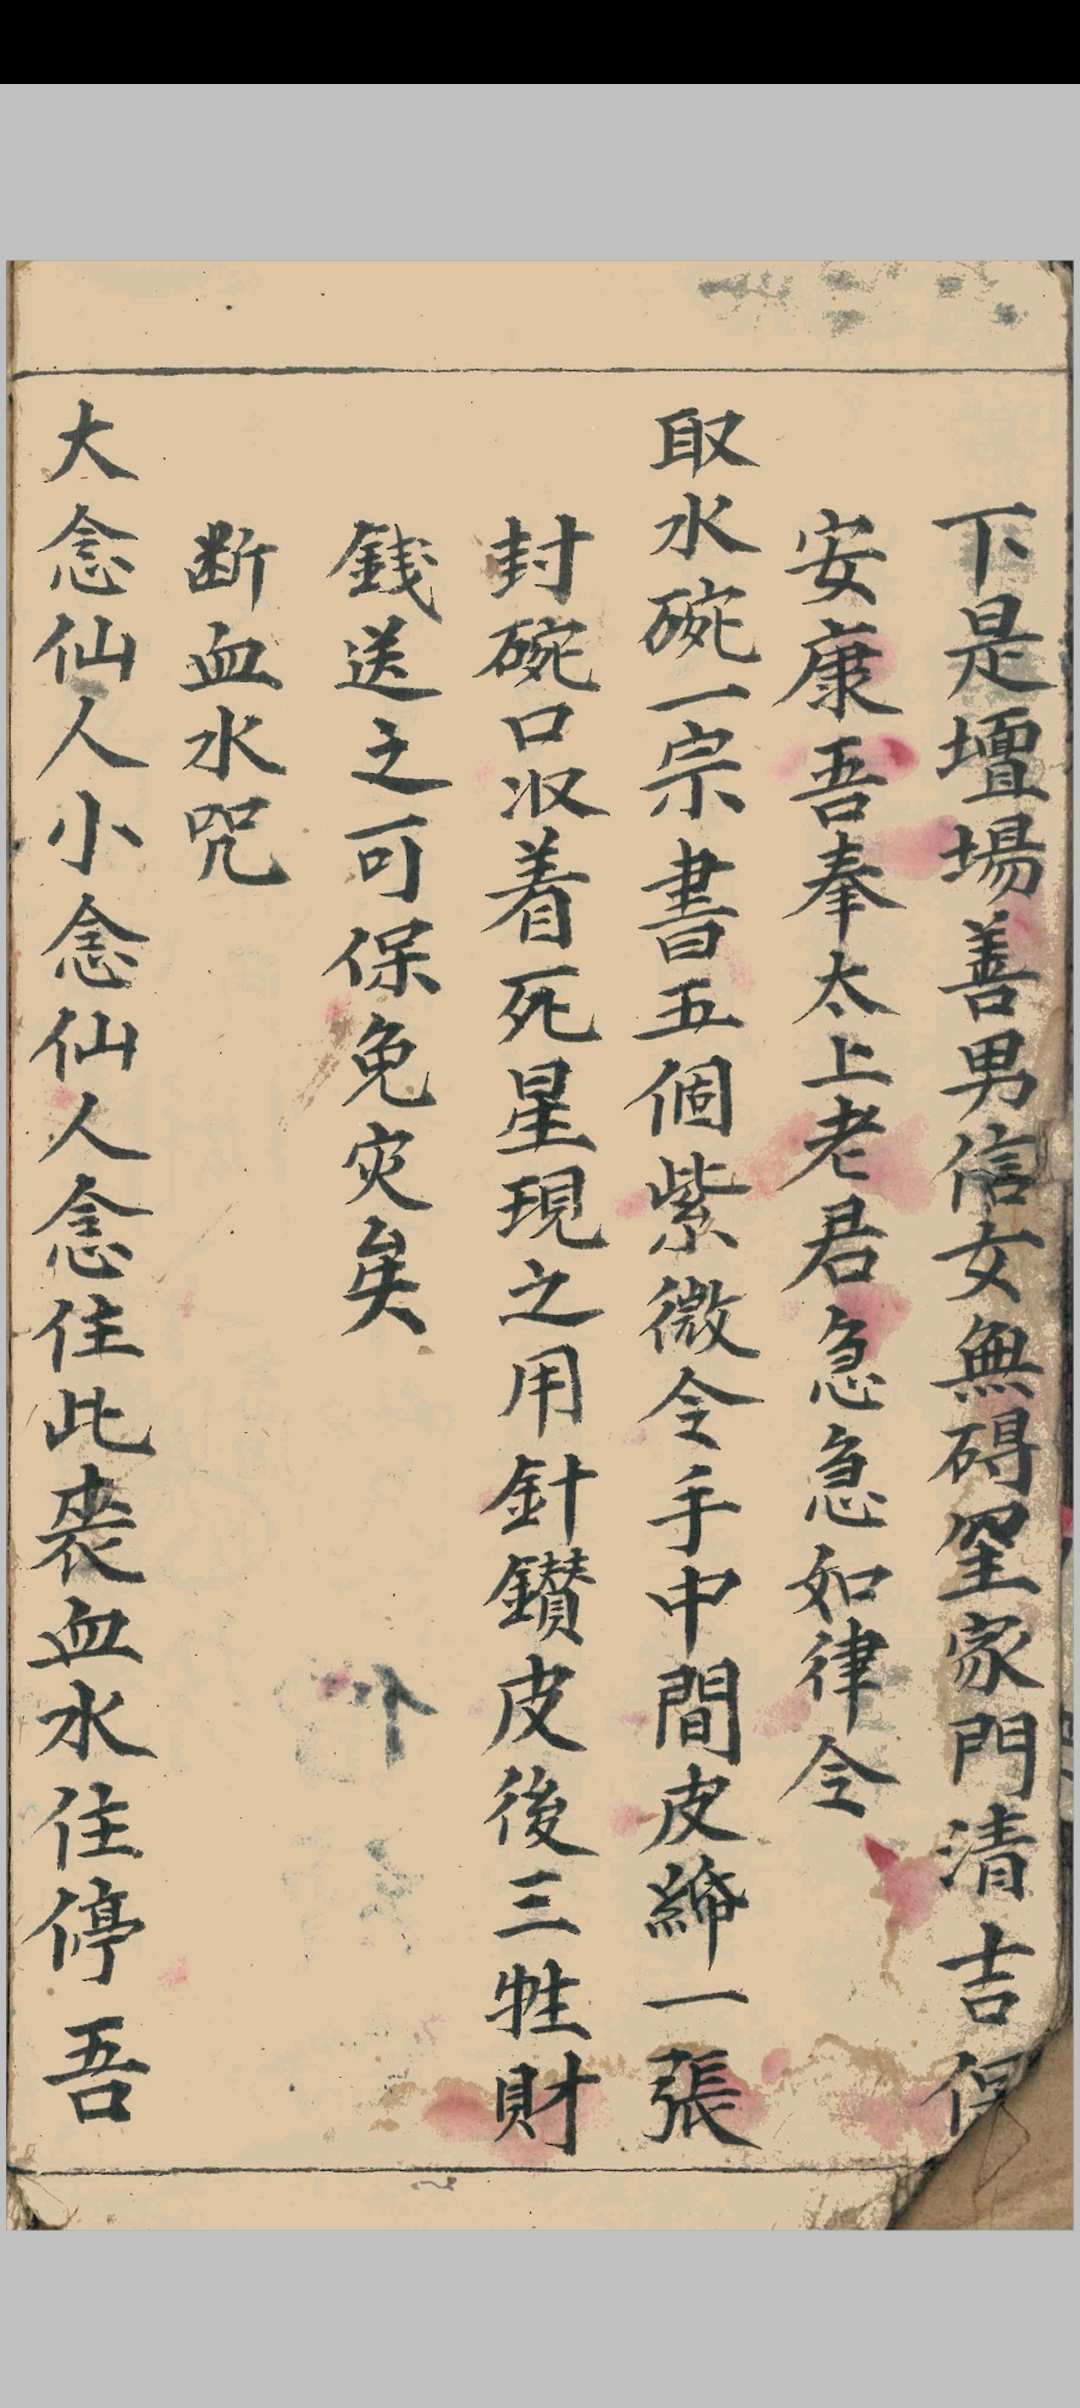 下是壇場善男信女無碍罣家門清吉保
安康吾奉太上老君急急如律令
取水碗一宗書五個紫微令手中間皮綿一張
封碗口収着死星現之用針鑽皮後三牲財
錢送之可保免灾矣
断血水咒
大念仙人小念仙人念住此丧血水住停吾